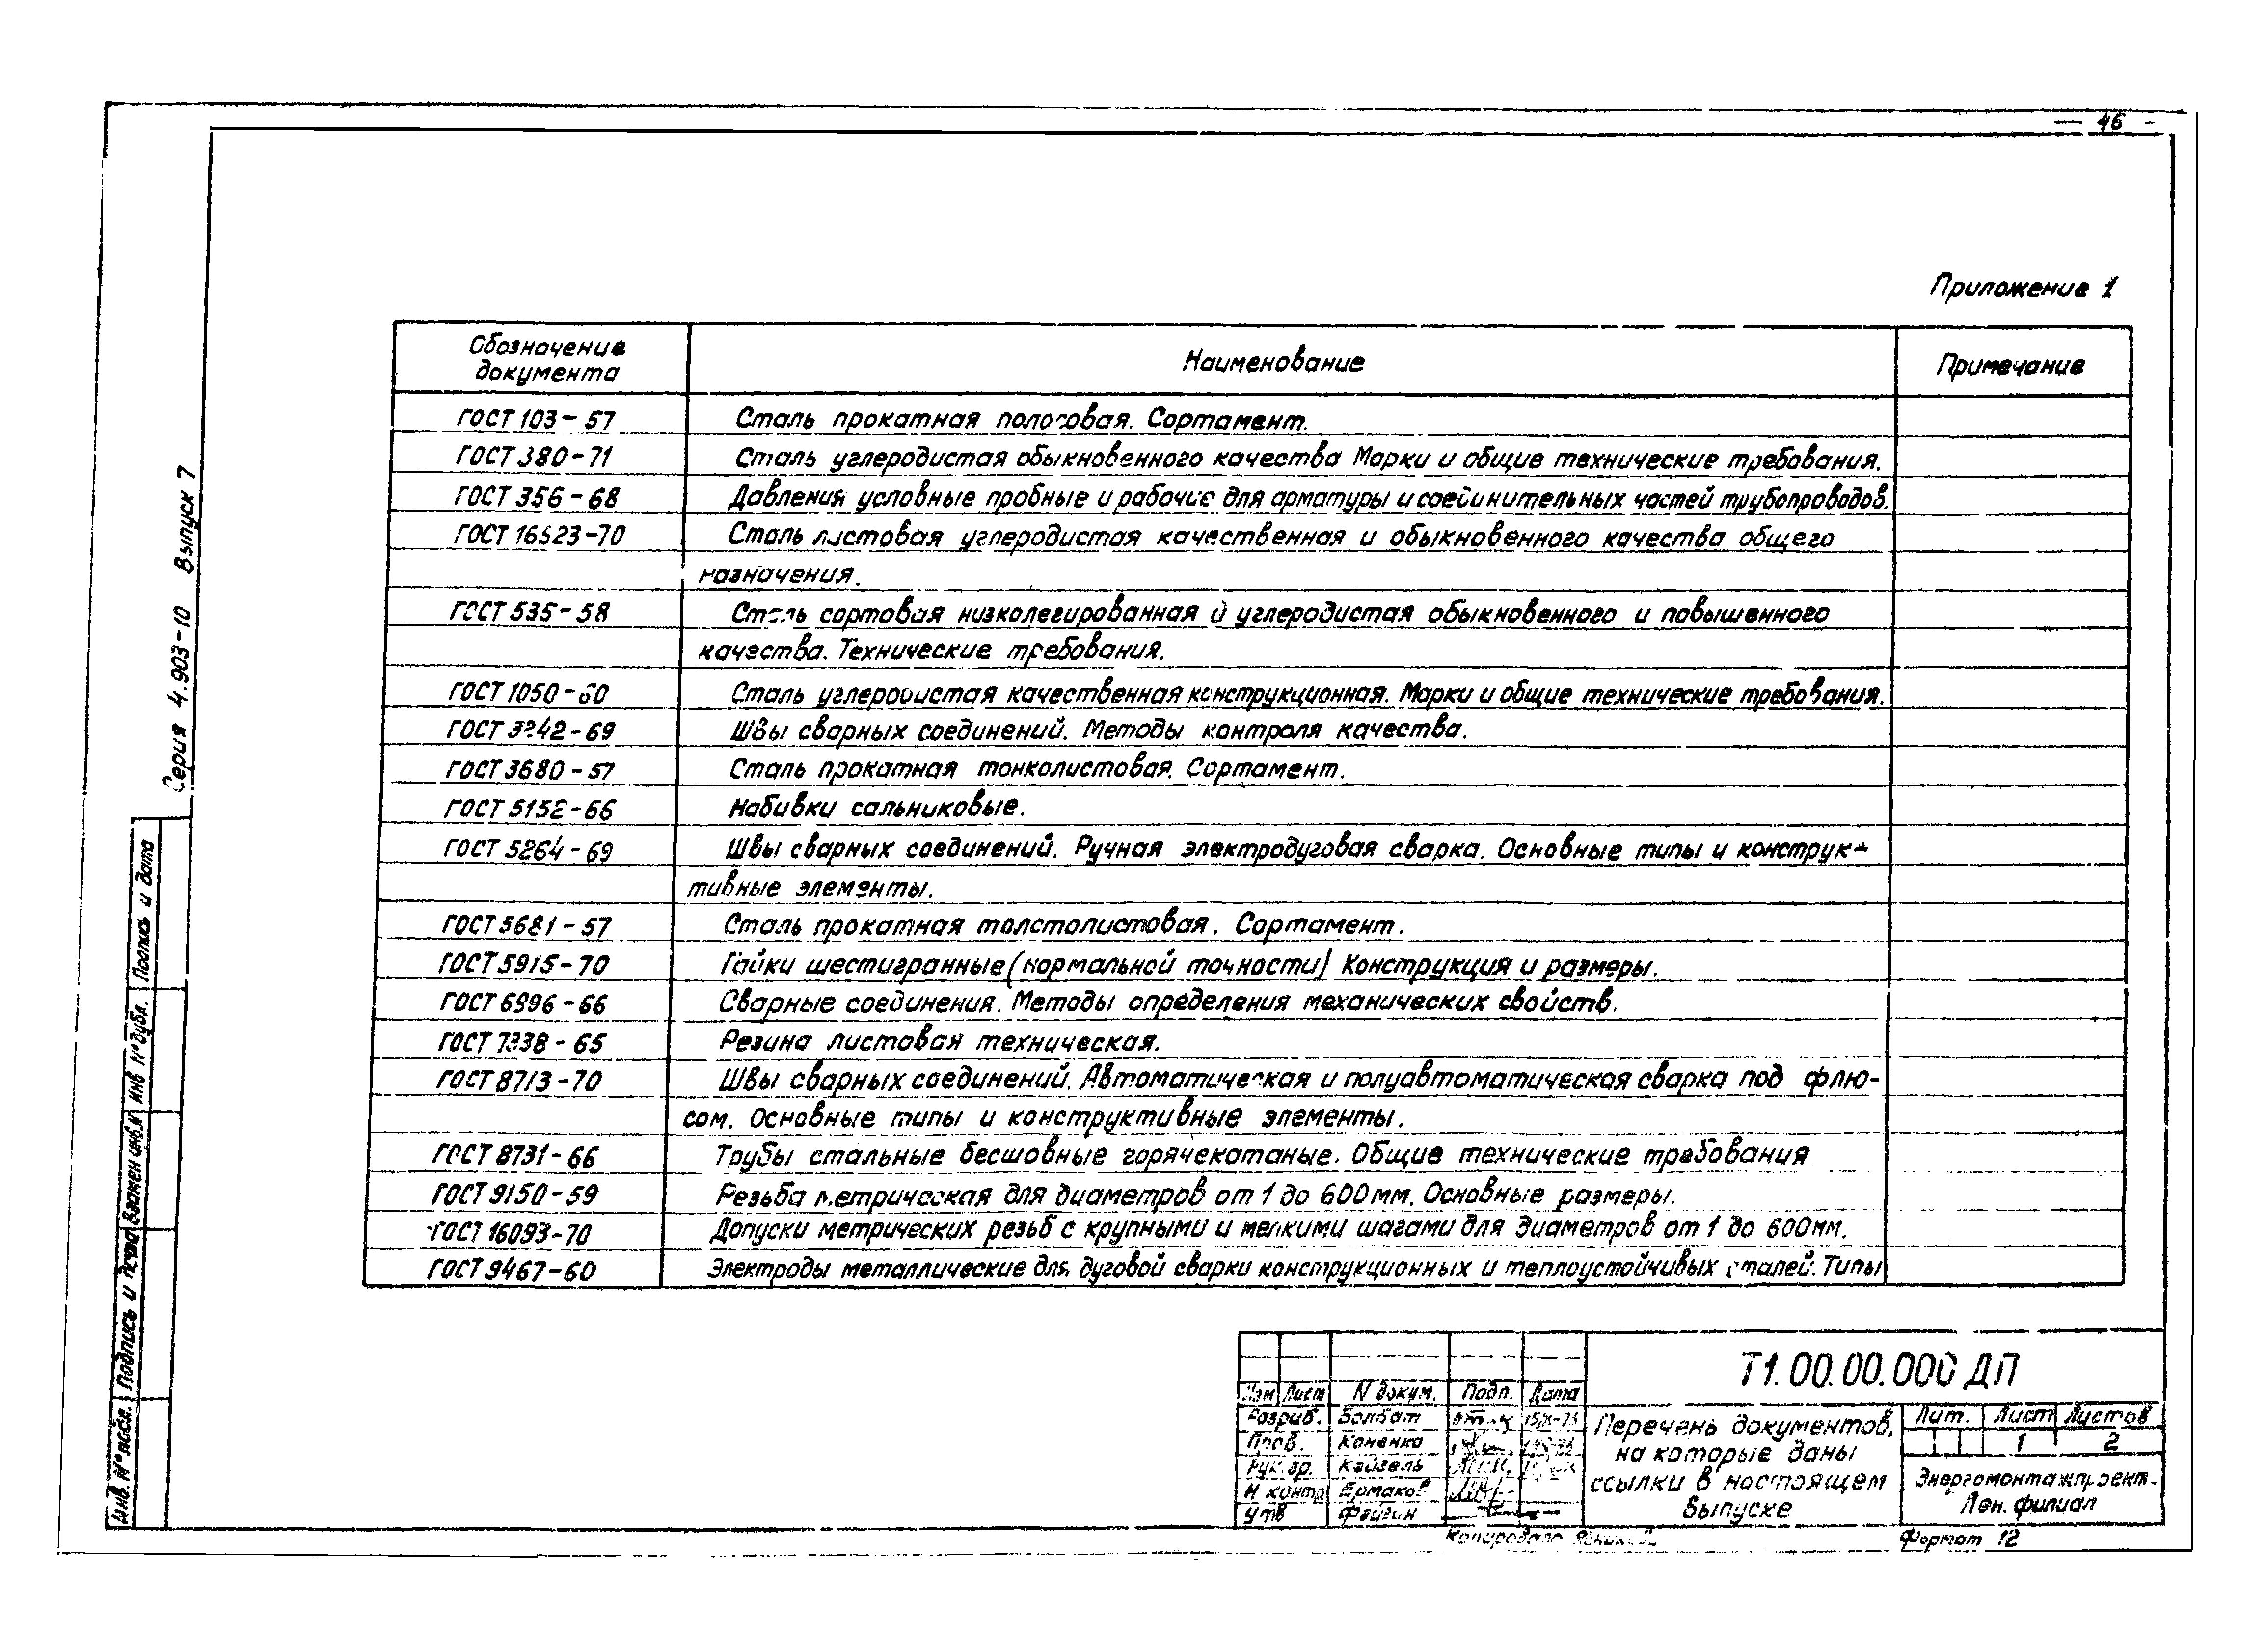 — 46 -
Приложение 1
Обозначение документа
Наименование
Примечание
ГОСТ 103-57 Сталь прокатная полосовая. Сортамент.
ГОСТ 380-71 Сталь углеродистая обыкновенного качества Марки и общие технические требования.
ГОСТ 356-68 Давления условные пробные и рабочие для арматуры и соединительных частей трубопроводов.
ГОСТ 16523-70 Сталь листовая углеродистая качественная и обыкновенного качества общего
назначения.
ГОСТ 535-58 Сталь сортовая низколегированная и углеродистая обыкновенного и повышенного
качества. Технические требования.
ГОСТ 1050-60 Сталь углеродистая качественная конструкционная. Марки и общие технические требования.
ГОСТ 3242-69 Швы сварных соединений. Методы контроля качества.
ГОСТ 3680-57 Сталь прокатная тонколистовая. Сортамент.
ГОСТ 5152-66 Набивки сальниковые.
ГОСТ 5264-69 Швы сварных соединений. Ручная электродуговая сварка. Основные типы и конструк-
тивные элементы.
ГОСТ 5681-57 Сталь прокатная толстолистовая. Сортамент.
ГОСТ 5915-70 Гайки шестигранные (нормальной точности) Конструкция и размеры.
ГОСТ 6996-66 Сварные соединения. Методы определения механических свойств.
ГОСТ 7338-65 Резина листовая техническая.
ГОСТ 8713-70 Швы сварных соединений. Автоматическая и полуавтоматическая сварка под флю-
сом. Основные типы и конструктивные элементы.
ГОСТ 8731-66 Трубы стальные бесшовные горячекатаные. Общие технические требования
ГОСТ 9150-59 Резьба метрическая для диаметров от 1 до 600 мм. Основные размеры.
ГОСТ 16093-70 Допуски метрических резьб с крупными и мелкими шагами для диаметров от 1 до 600 мм.
ГОСТ 9467-60 Электроды металлические для дуговой сварки конструкционных и теплоустойчивых сталей. Типы
Серия 4.903-10 Выпуск 7
Подпись и дата
Инв № дубл.
Взамен инв. №
Подпись и дата
Инв. № подл.
Т1.00.00.000 ДП
Изм Лист N докум. Подп. Дата
Разраб. Болбат
Пров. Коненко
Рук. гр. Кайзель
Н контр Ермаков
Утв Файгин
Перечень документов,
на которые даны
ссылки в настоящем
выпуске
Лит. Лист Листов
1 2
Энергомонтажпроект.
Лен. филиал
Копировала
Формат 12